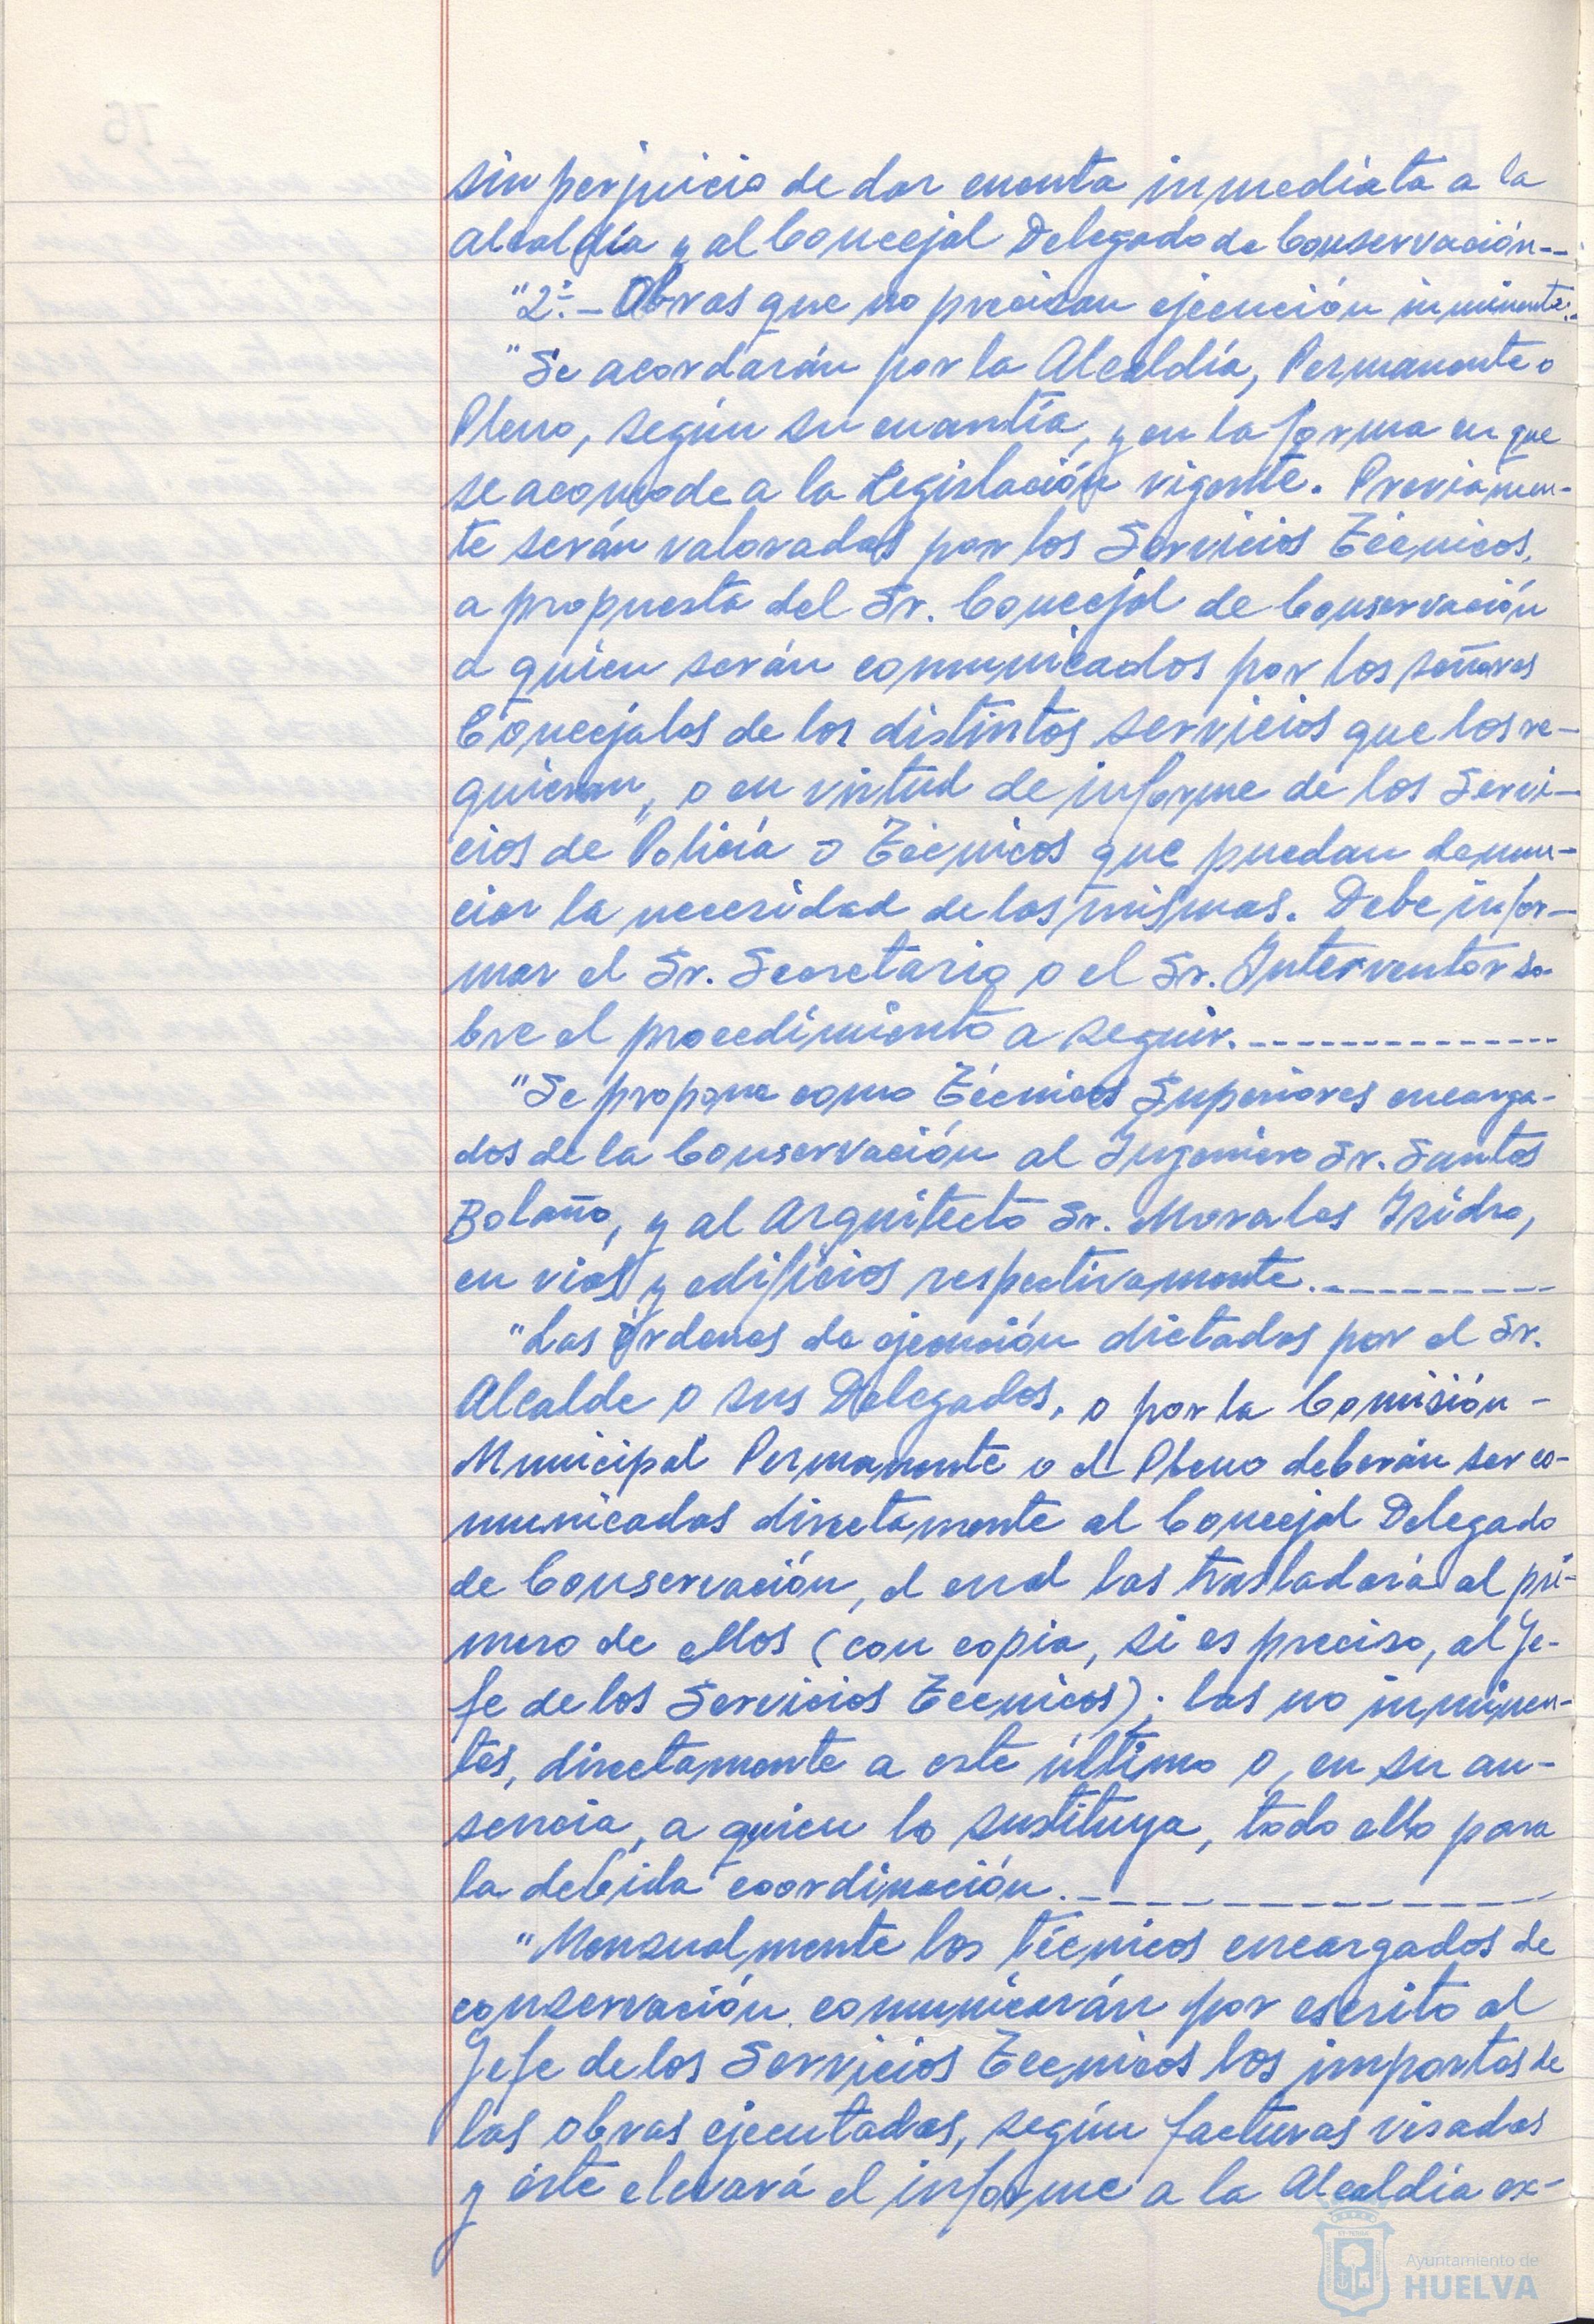 sin perjuicio de dar cuenta inmediata a la
alcaldía y al Concejal Delegado de Conservación--
"2º.- Obras que no precisan ejecución inminente:-
"Se acordarán por la Alcaldía, Permanente o
Pleno, según su cuantía, y en la forma en que
se acomode a la Legislación vigente. Previamen-
te serán valoradas por los Servicios Técnicos,
a propuesta del Sr. Concejal de Conservación
a quien serán comunicados por los señores
Concejales de los distintos servicios que los re-
quieran, o en virtud de informe de los Servi-
cios de Policía o Técnicos que puedan denun-
ciar la necesidad de las mismas. Debe infor-
mar el Sr. Secretario o el Sr. Interventor so-
bre el procedimiento a seguir.--------------
"Se propone como Técnicos Superiores encarga-
dos de la Conservación al Ingeniero Sr. Santos
Bolaño, y al Arquitecto Sr. Morales Isidro,
en vias y edificios respectivamente.---------
"Las órdenes de ejecución dictadas por el Sr.
Alcalde o sus Delegados, o por la Comisión -
Municipal Permanente o el Pleno deberán ser co-
municadas directamente al Concejal Delegado
de Conservación, el cual las trasladará al pri-
mero de ellos (con copia, si es preciso, al Je-
fe de los Servicios Tecnicos); las no inminen-
tes, directamente a este último o, en su au-
sencia, a quien lo sustituya, todo ello para
la debida coordinación.----------
"Mensualmente los técnicos encargados de
conservación comunicarán por escrito al
Jefe de los Servicios Tecnicos los importes de
las obras ejecutadas, según facturas visadas
y éste elevará el informe a la Alcaldía ex-
Ayuntamiento de
HUELVA